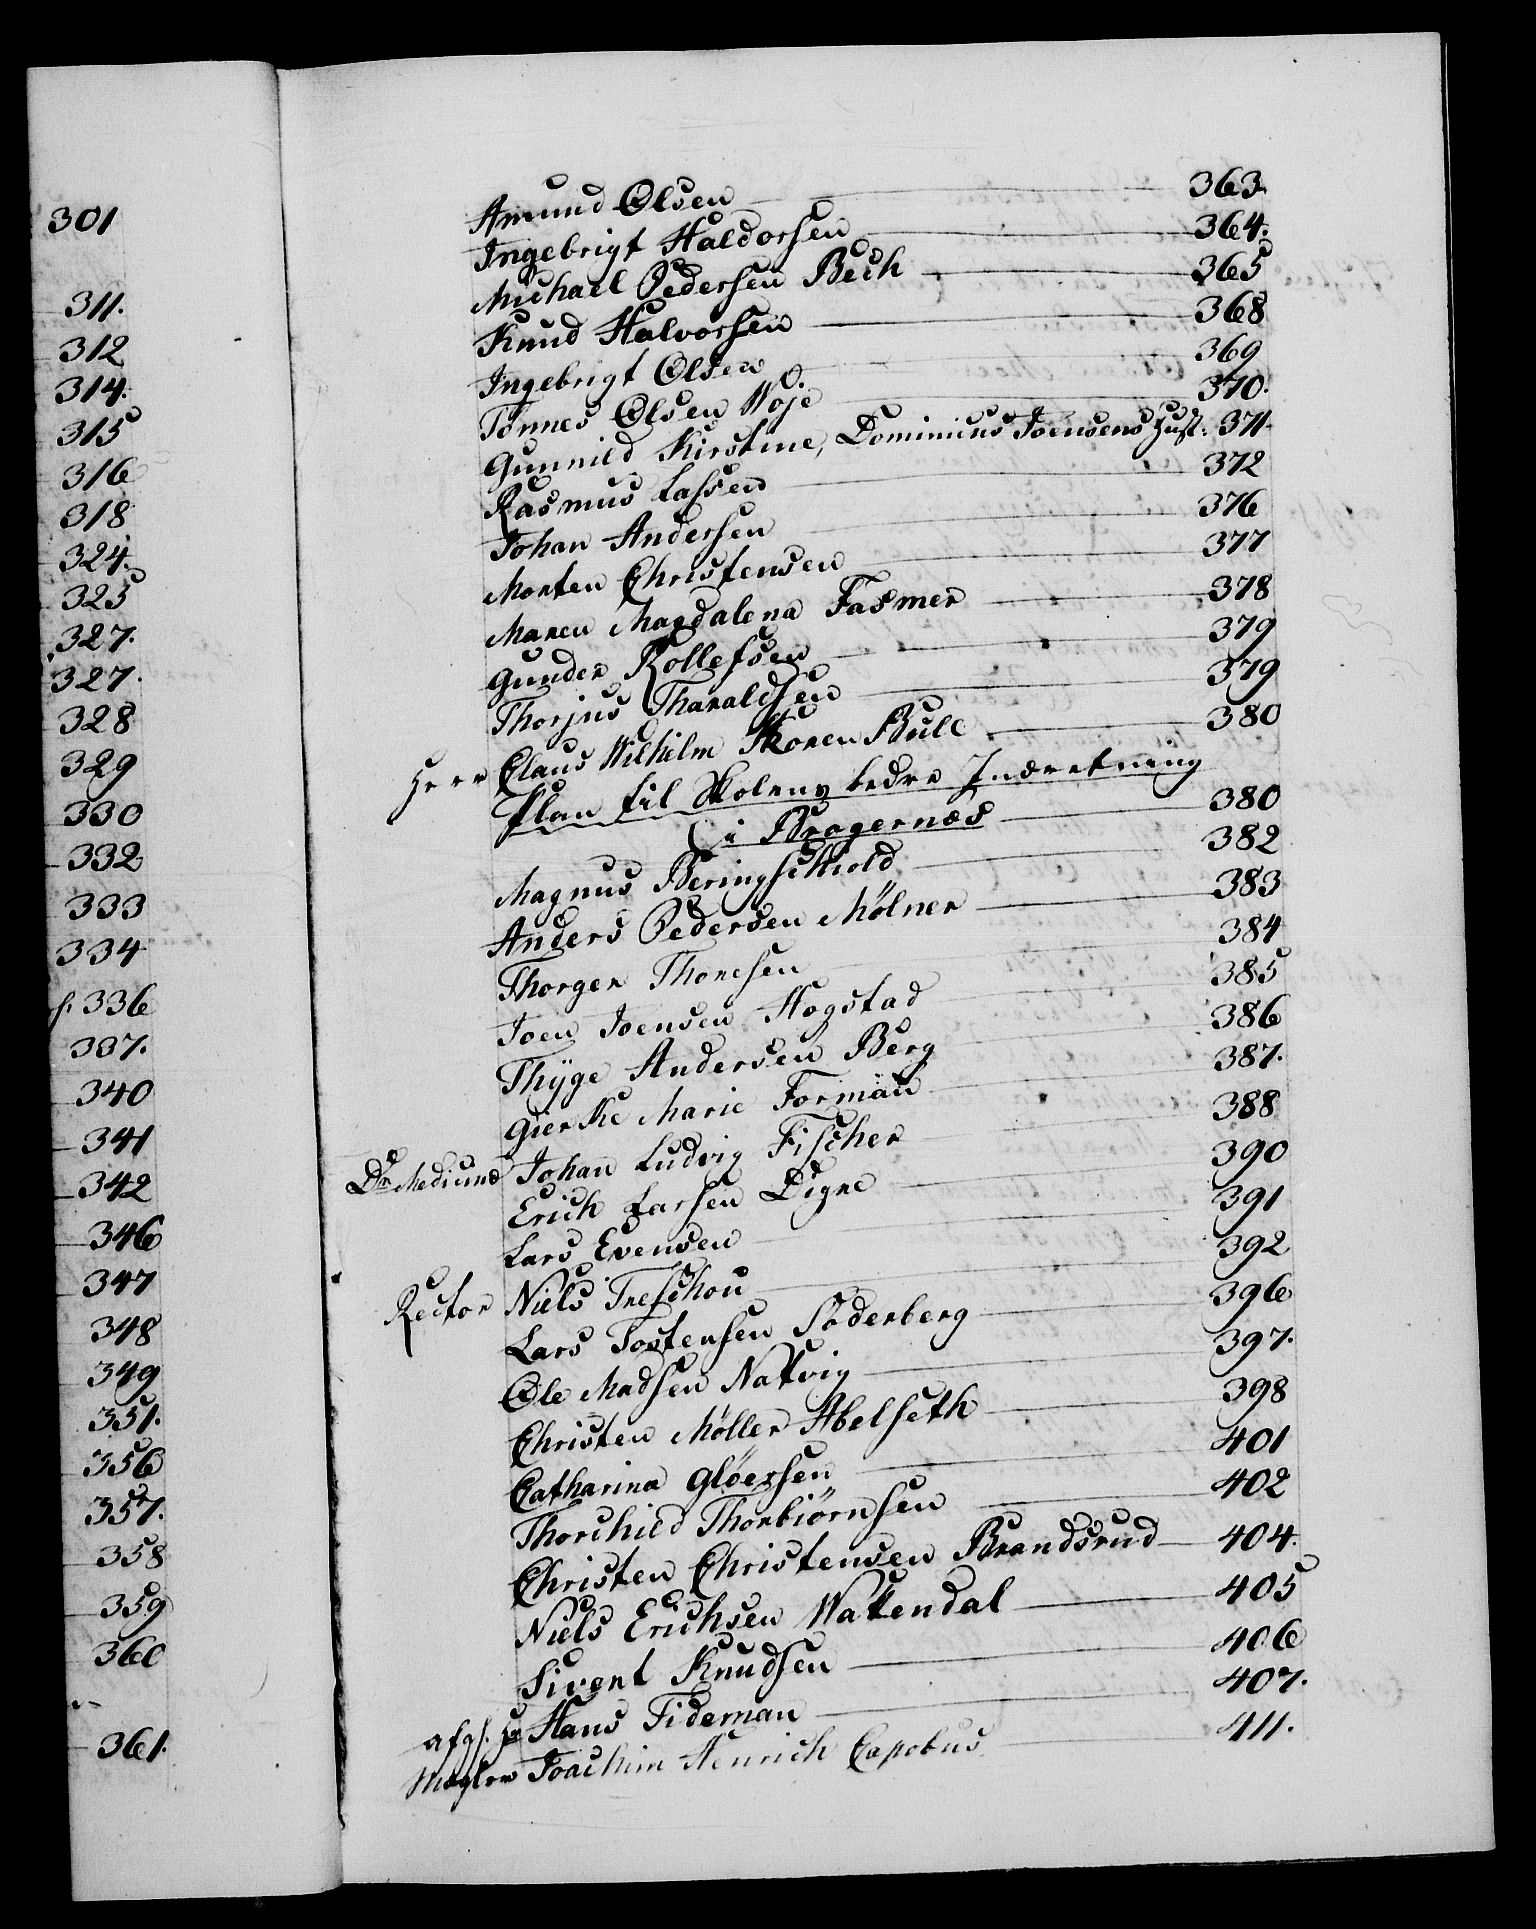 301
311.
312
314.
315
316
318
324.
325
327.
327.
328
329
330
332
333
334
336
337.
340
341
342
346
347
348
349
351.
356
357.
358
359
360
361.
Amund Olsen 363.
Ingebrigt Haldorsen 364.
Michael Pedersen Bech 365
Knud Halvorsen 368
Ingebrigt Olsen 369
Tønnes Olsen Woje 370.
Gunnild Kirstine, Dominicus Joensens Hust: 371.
Rasmus Lassen 372
Johan Andersen 376
Morten Christensen 377
Maren Magdalena Fasmer 378
Gunder Rollefsen 379
Thorjus Tharaldsen 379
Herr Claus Wilhelm Skoren Bull 380
Plan til Skolens bedre Indretning
i Bragernæs 380
Magnus Beringschiold 382
Anders Pedersen Mölner 383
Thorger Thoresen 384
Joen Joensen Hogstad 385
Thÿge Andersen Berg 386
Gierke Marie Forman 387.
Dr. Medicinæ Johan Ludvig Fischer 388
Erich Larsen Digre 390
Lars Evensen 391
Rector Niels Treschou 392
Lars Tostensen Söderberg 396
Ole Madsen Natvig 397.
Christen Möller Abelseth 398
Catharina Glöersen 401
Thorchild Thorbiörnsen 402
Christen Christensen Brandsrud 404.
Niels Erichsen Wattendal 405
Sivert Knudsen 406
afg. Hr Hans Tideman 407.
Mægler Joachim Henrich Capobus 411.